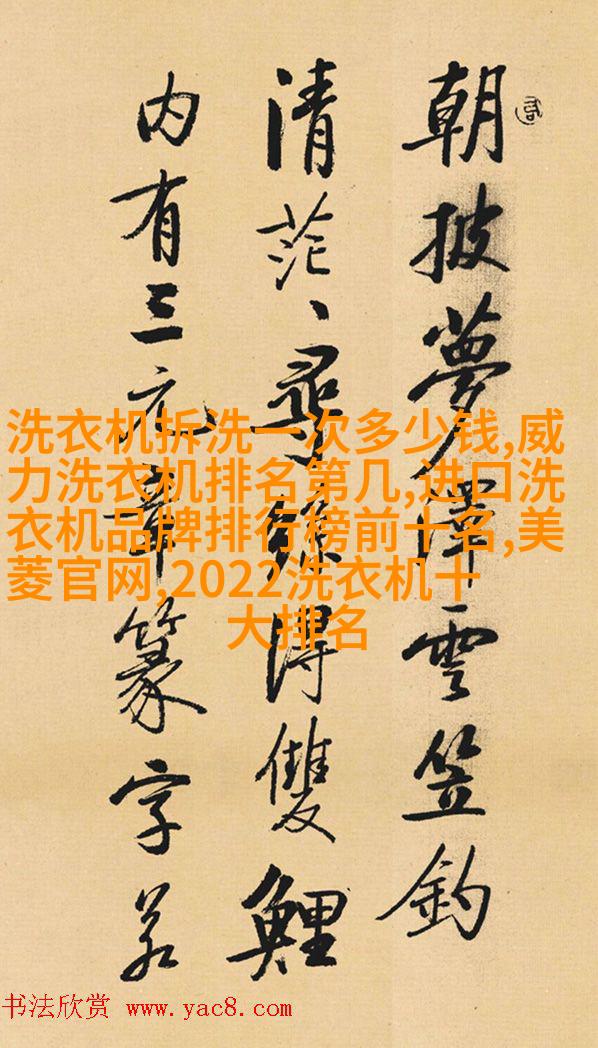 朝披夢澤雲笠釣
清茫、尋絲得雙鯉
内有三元章篆字若
洗衣机拆洗一次多少钱,威
力洗衣机排名第几,进口洗
衣机品牌排行榜前十名,美
菱官网,2022洗衣机十
大排名
书法欣赏 www.yac8.com